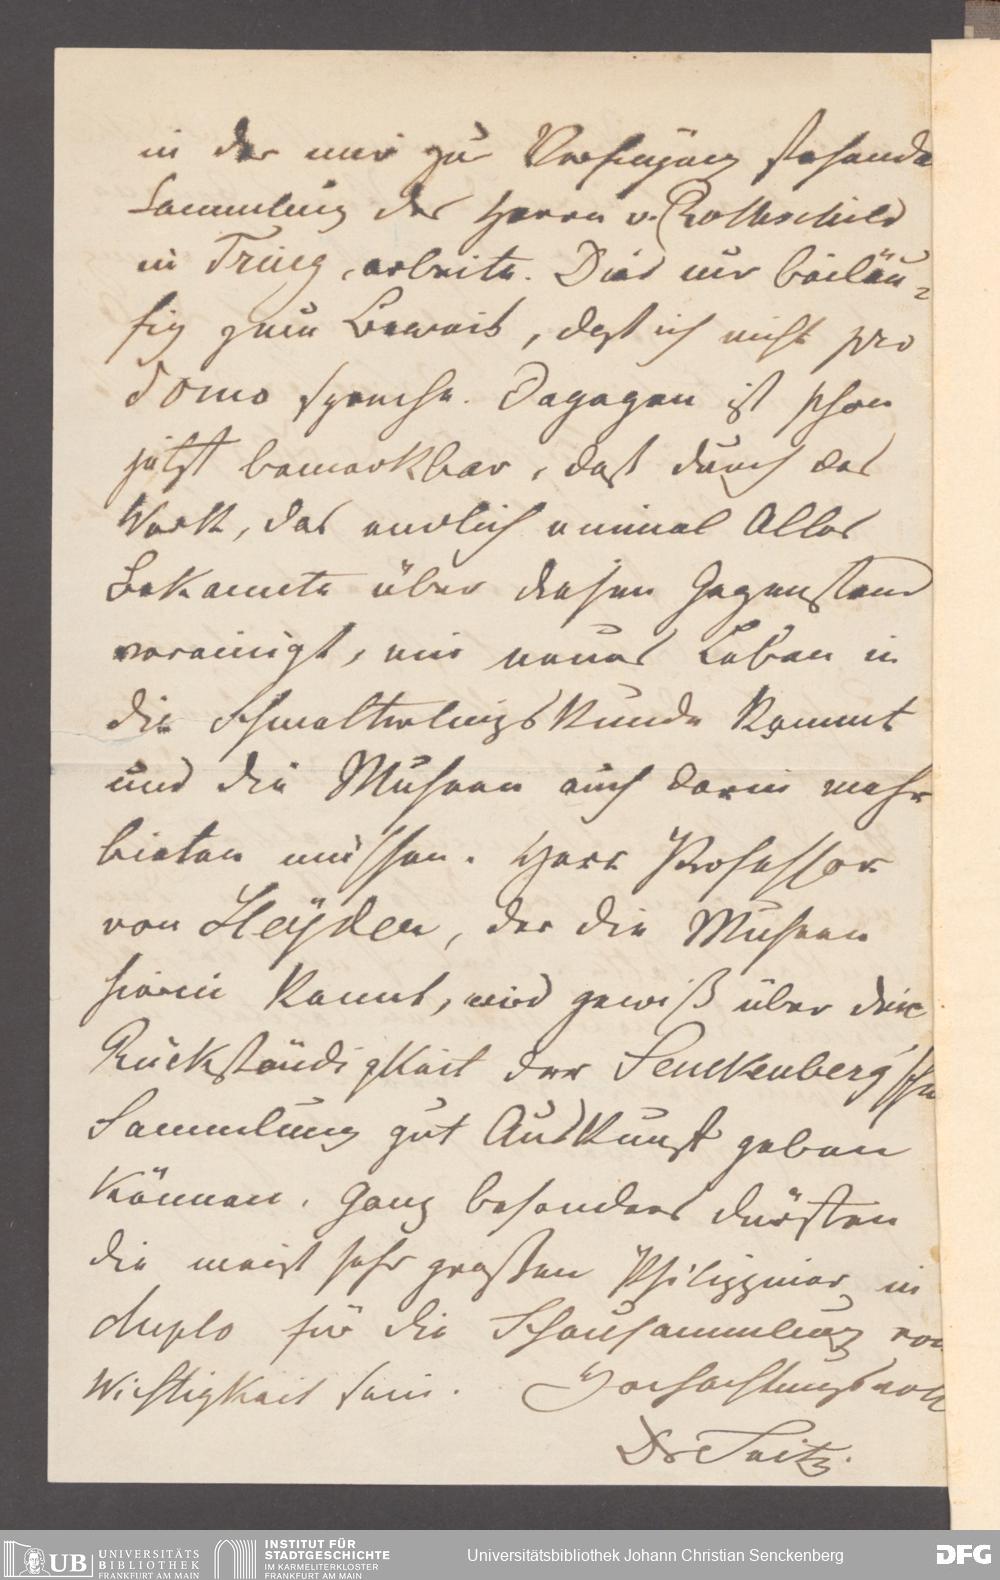 in der mir zur Verfügung stehende
Sammlung des Herrn v. Rothschild
in Tring, arbeite. Dies nur beiläu-
fig zum Beweis, daß ich nicht pro
domo spreche. Dagegen ist schon
jetzt bemerkbar, daß durch das
Werk, das endlich einmal Alles
Bekannte über diesen Gegenstand
vereinigt, ein neues Leben in
die Schmetterlingskunde kommt
und die Museen auch darin mehr
bieten müssen. Herr Professor
von Heyden, der die Museen
hierin kennt, wird gewiß über die
Rückständigkeit der Senckenberg'schen
Sammlung gut Auskunft geben
können. Ganz besonders dürften
die meist sehr großen Philippiner in
duplo für die Schausammlung von
Wichtigkeit sein. Hochachtungsvoll
Dr Seitz.
UB UNIVERSITÄTS
BIBLIOTHEK
FRANKFURT AM MAIN
INSTITUT FÜR
STADTGESCHICHTE
IM KARMELITERKLOSTER
FRANKFURT AM MAIN
Universitätsbibliothek Johann Christian Senckenberg
DFG